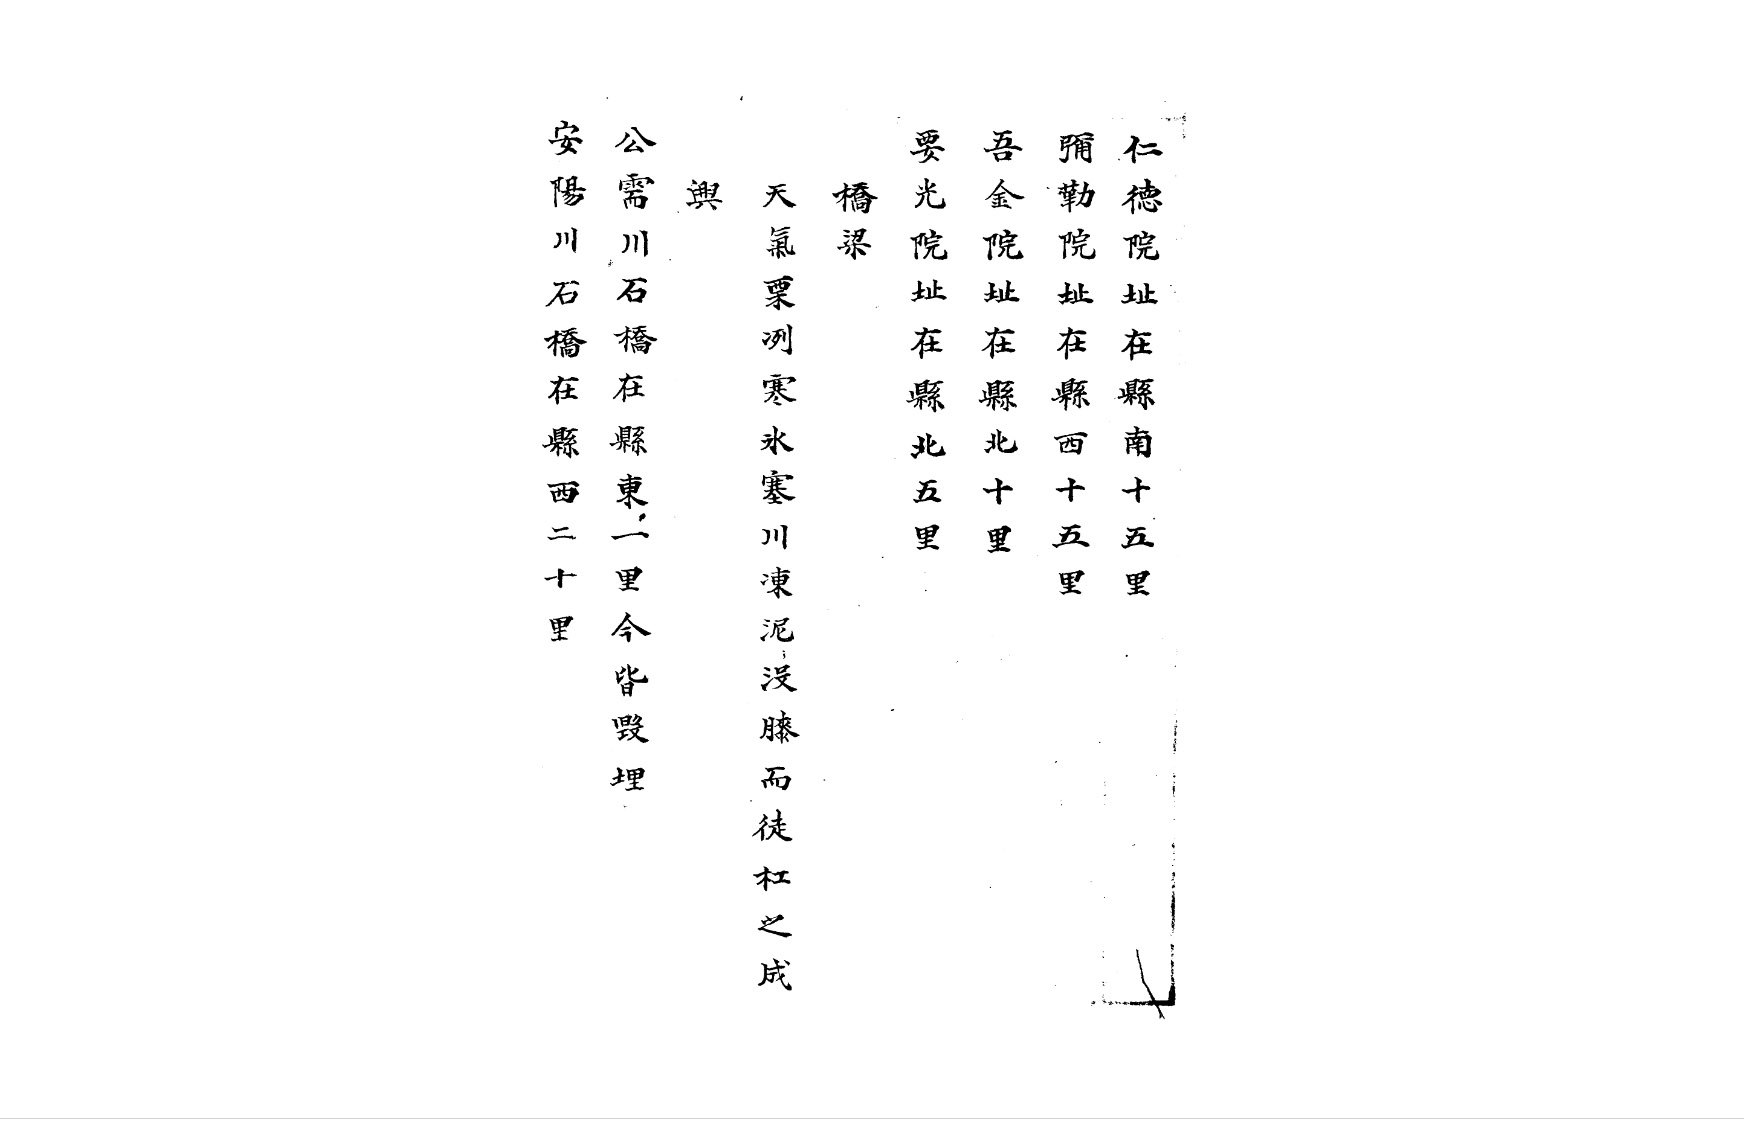 仁德院址在縣南十五里
彌勒院址在縣西十五里
吾金院址在縣北十里
要光院址在縣北五里
橋梁
天氣栗冽寒氷塞川凍泥沒膝而徒杠之成
輿
公需川石橋在縣東一里今皆毀埋
安陽川石橋在縣西二十里